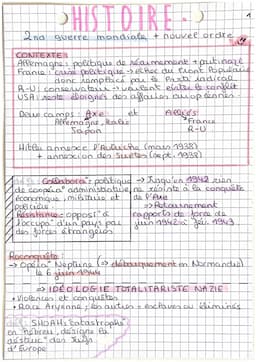 HISTOIRE
1
2nd guerre mondiale + nouvel ordre
CONTEXTE:
Allemagne: politique de réarmement + antinazie
France: crise politique → échec du Front Populaire
donc remplacé par le Parti radical
R-U: conservateurs → veulent éviter le conflit
USA: reste éloignés des affaires européennes.
Deux camps: Axe et Alliés
Allemagne, Italie → France
Japon R-U
Hitler annexe l'Autriche (mars 1938)
+ annexion des Sudètes (sept. 1938)
Collabora°: politique
de coopéra° administrative,
économique, militaire et
policière.
Résistance: opposi° à
l'occupa° d'un pays par
des forces étrangères
→ Jusqu'en 1942 rien
ne résiste à la conquête
de l'Axe
→ Retournement
rapports de force de
juin 1942 à fév 1943
Reconquête:
→ Opéra° Neptune (→ débarquement en Normandie)
le 6 juin 1944
⇒ IDÉOLOGIE TOTALITARISTE NAZIE
• Violences et conquêtes
• Race Aryenne: les autres = esclaves ou éliminés
SHOAH: "catastrophe"
en hébreu, désigne la
destruc° des Juifs
d'Europe